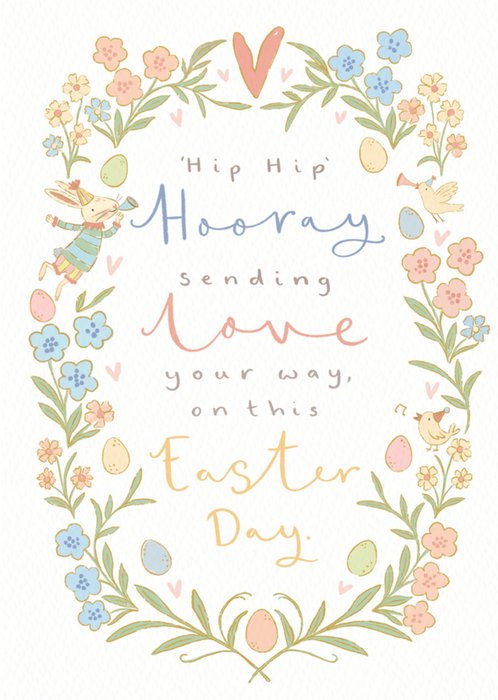 'Hip Hip'
Hooray
sending
love
your way,
on this
Easter
Day.